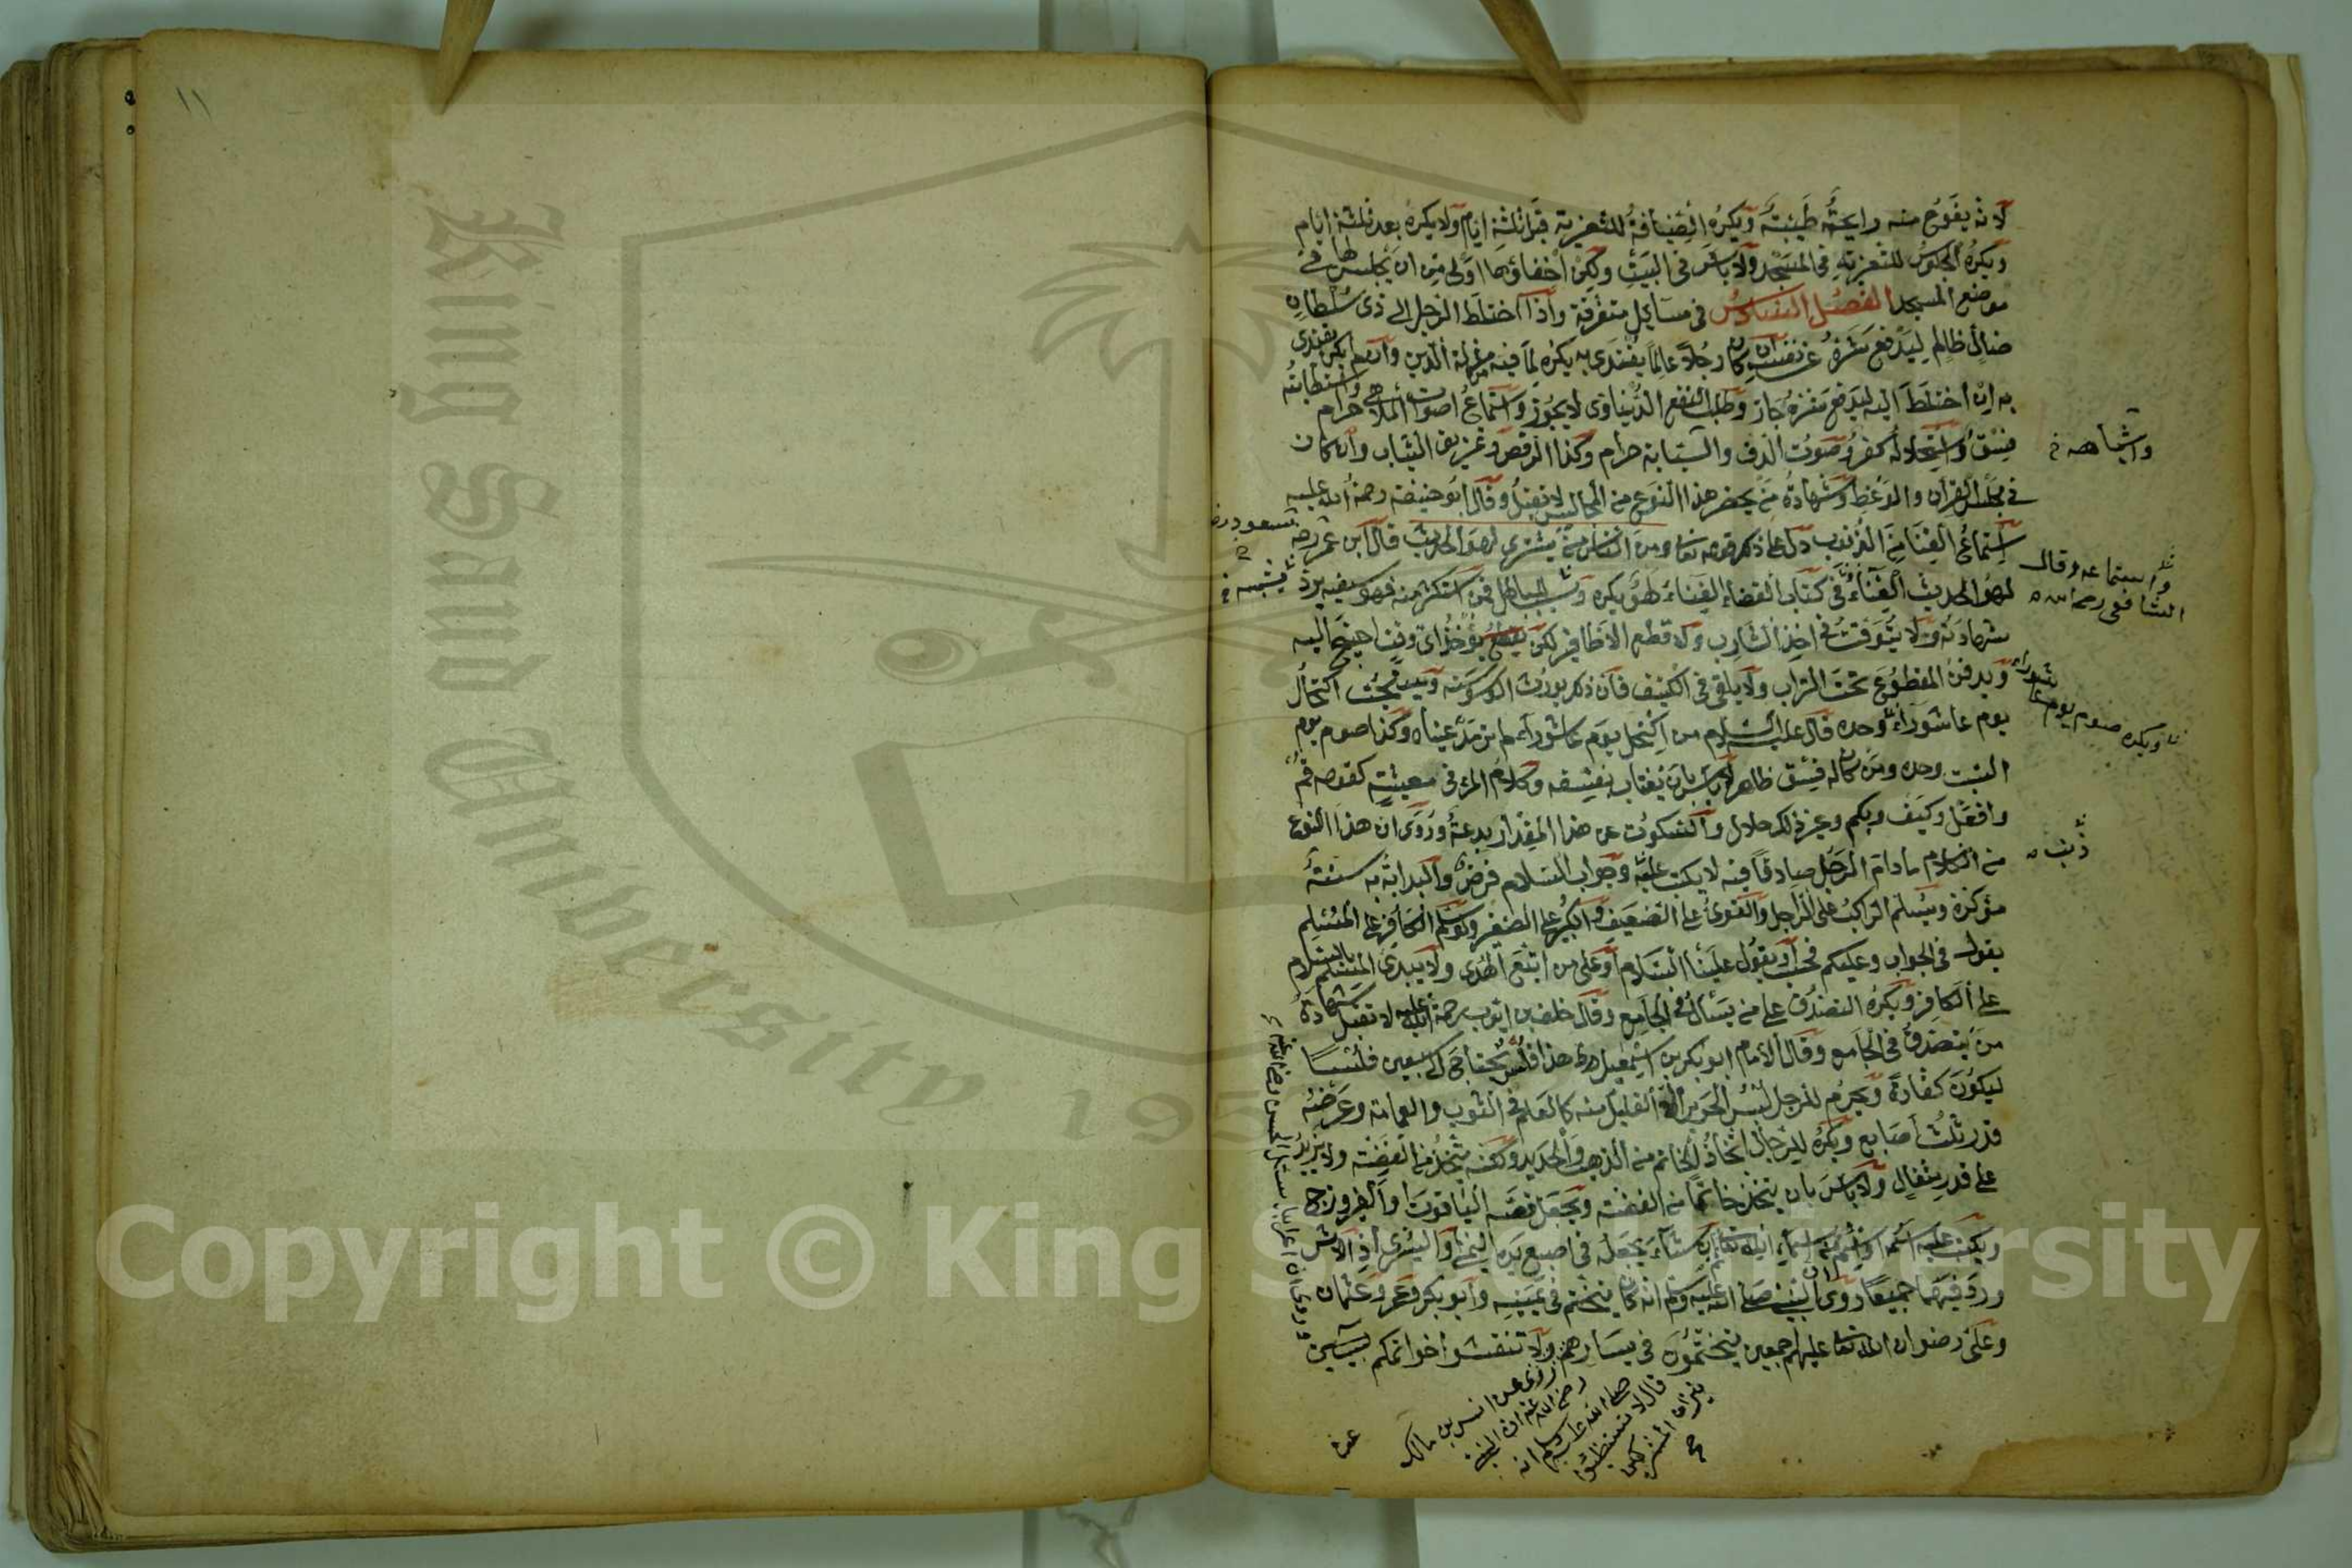 لانه يفوح منه رايحة طيبة ويكره الضيافة للتعزية قبل ثلثة ايام ولا يكره بعد ثلثة ايام
ويكره الجلوس للتعزية في المسجد ولا باس في البيت ولكن اخفاؤها اولى من ان يجلس لها في
موضع المسجد الفصل السادس في مسايل متفرقة واذا اختلط الرجل الى ذى سلطان
ظالم ليدفع شره عن نفسه ان كان رجلا عالما يقتدى به يكره لما فيه مذلة الدين وان لم يكن يقتدى
به ان اختلط اليه ليدفع شره جاز وطلب النفع الدنياوى لا يجوز واستماع اصوات الملاهى حرام واستطابته
فسق واستحلاله كفر وصوت الدف والشبابة حرام وكذا الرقص وتمزيق الثياب وان كان
في مجلس القران والوعظ وشهادة من يحضر هذا النوع من المجالس لا تقبل وقال ابو حنيفة رحمة الله عليه
استماع الغنا من الذنوب دل على ذلك قوله تعا ومن الناس من يشترى لهو الحديث قال ابن عمر رضه
لهو الحديث الغناء وفي كتاب القضاء الغناء لهو يكره يشبه الباطل فمن استكثر منه فهو سفيه يرد
شهادته ولا يتوقت في اخذ الشارب ولا قطع الاظافير لكن يؤخذ اى وقت احتيج اليه
ويدفن المقطوع تحت التراب ولا يلقى في الكنيف فان ذلك يورث الوسوسة ويستحب اكتحال
يوم عاشوراء وحده قال عليه السلام من اكتحل يوم عاشوراء لم ترمد عيناه وكذا صوم يوم
السبت وحده ومن كان له فسق ظاهر لا باس بان يغتاب بفسقه وكلام المرء في معيشته كقوله قم
وافعل وكيف وبكم وغير ذلك حلال والسكوت عن هذا المقدار بدعة وروى ان هذا النوع
من الكلام ما دام الرجل صادقا فيه لا يكتب عليه وجواب السلام فرض والبداية به سنة
مؤكدة ويسلم الراكب على الراجل والقوى على الضعيف والكبير على الصغير ولو سلم الكافر على المسلم
يقول في الجواب وعليكم فحسب او يقول علينا السلام او على من اتبع الهدى ولا يبدى المسلم بالسلام
على الكافر ويكره التصدق على من يسأل في الجامع وقال خلف بن ايوب رحمة الله عليه لا تقبل شهادة
من يتصدق في الجامع وقال الامام ابو بكر بن اسمعيل هذا فلس يحتاج الى سبعين فلسا
ليكون كفارة ويحرم للرجل لبس الحرير الا القليل منه كالعلم في الثوب والعمامة وعرضه
قدر ثلث اصابع ويكره للرجال اتخاذ الخاتم من الذهب والحديد ولكنه يتخذ من الفضة ولا يزيد
على قدر مثقال ولا باس بان يتخذ خاتما من الفضة ويجعل فصه الياقوت او الفيروزج
ويكتب عليه اسمه او اسم من اسماء الله تعا ان شاء يجعله في اصبع يده اليمنى او اليسرى اذ الاثر
ورد فيهما جميعا روى ان النبي صلى الله عليه وسلم انه كان يتختم في يمينه وابو بكر وعمر وعثمان
وعلى رضوان الله تعا عليهم اجمعين يتختمون في يسارهم ولا تنقشوا خواتمكم
واشباهه
واستماعه وقال
الشافعى رحمه الله
مسعود رضه
ويكره صوم يوم عاشوراء
ذنب
روى عن انس بن مالك
رضى الله عنه ان النبي
صلى الله عليه وسلم انه
قال لا تستضيئوا
بنيران المشركين
١١
Copyright © King Saud University
King Saud University
195